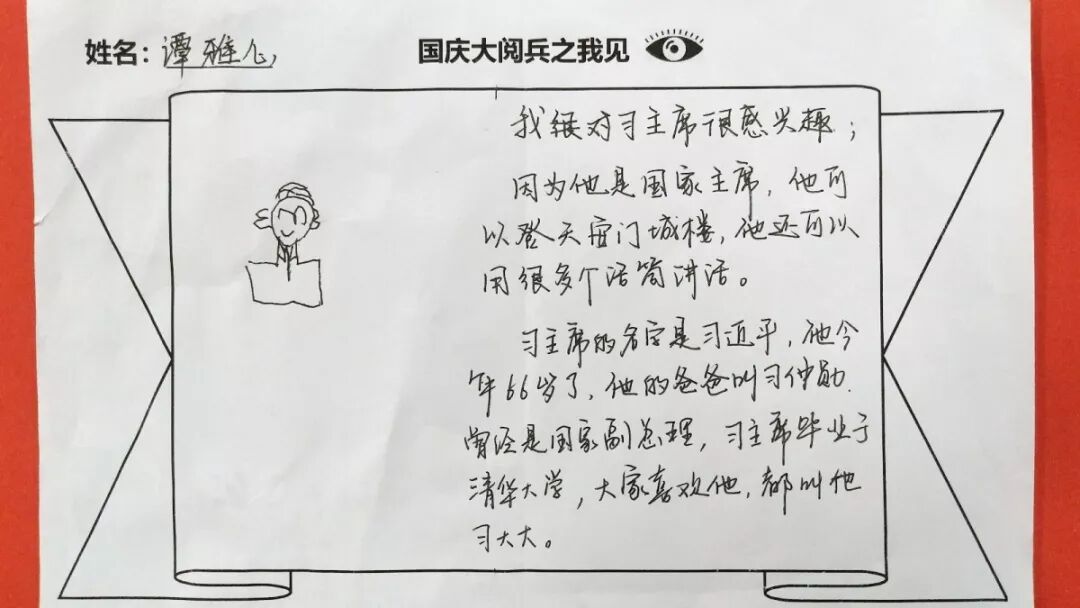 姓名：谭雅心
国庆大阅兵之我见
我很对习主席很感兴趣；
因为他是国家主席，他可
以登天安门城楼，他还可以
用很多个话筒讲话。
习主席的名字是习近平，他今
年66岁了，他的爸爸叫习仲勋．
曾经是国家副总理，习主席毕业于
清华大学，大家喜欢他，都叫他
习大大。